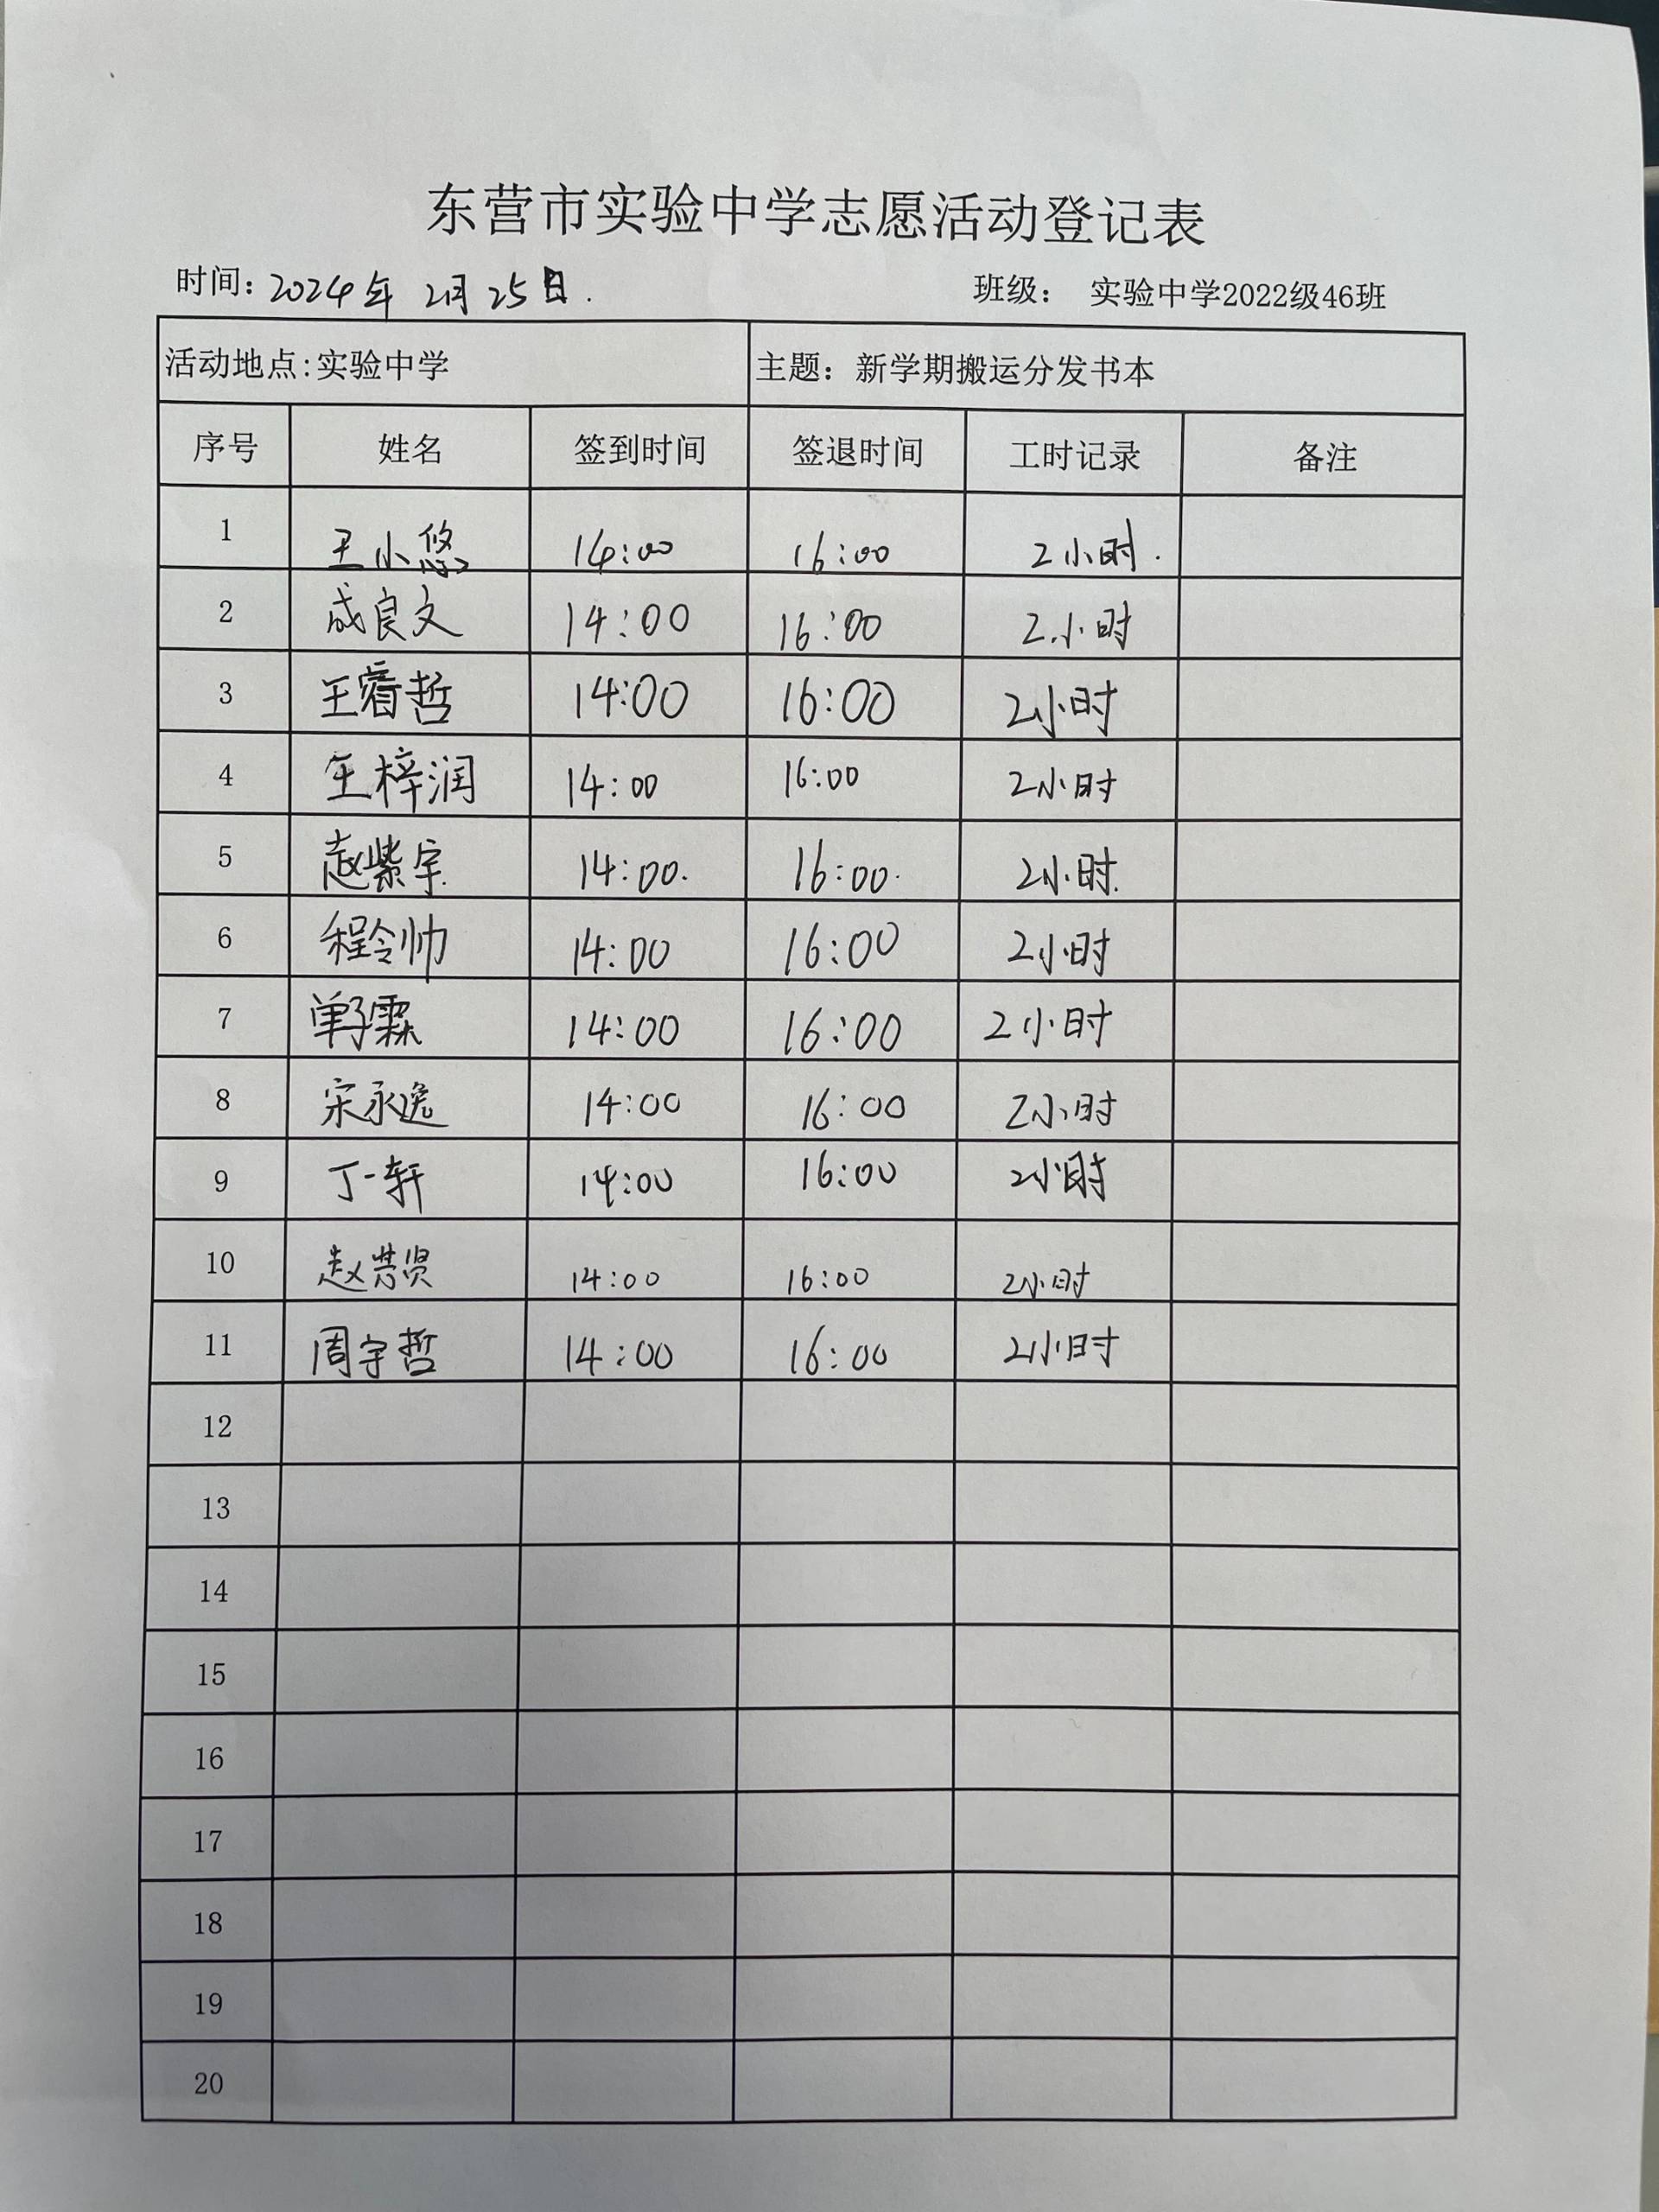 东营市实验中学志愿活动登记表
时间: 2024年 2月 25日. 班级: 实验中学2022级46班
活动地点:实验中学 主题: 新学期搬运分发书本
序号 姓名 签到时间 签退时间 工时记录 备注
1 王小悠 14:00 16:00 2小时.
2 成良文 14:00 16:00 2小时
3 王睿哲 14:00 16:00 2小时
4 王梓润 14:00 16:00 2小时
5 赵紫宇. 14:00. 16:00. 2小时.
6 程令帅 14:00 16:00 2小时
7 单子霖 14:00 16:00 2小时
8 宋永逸 14:00 16:00 2小时
9 丁一轩 14:00 16:00 2小时
10 14:00 16:00 2小时
11 周宇哲 14:00 16:00 2小时
12
13
14
15
16
17
18
19
20